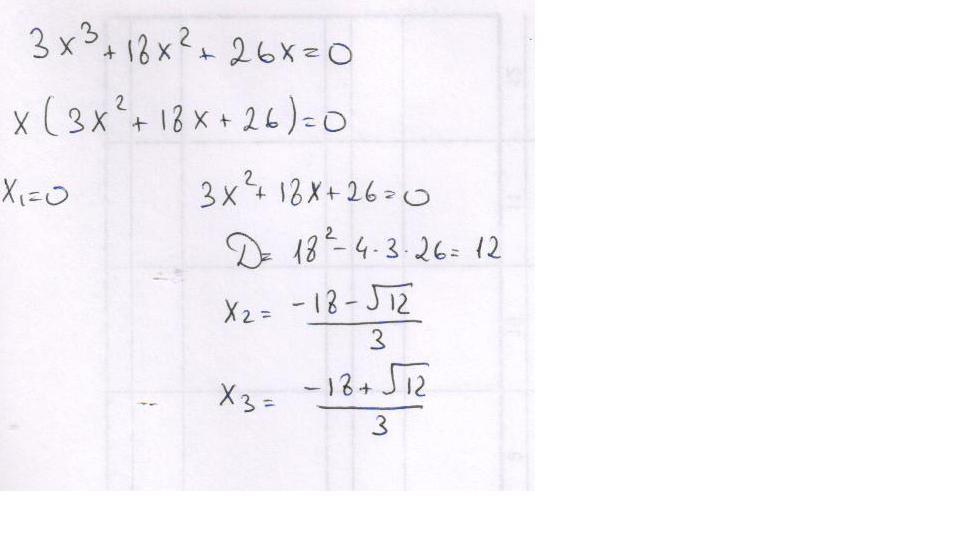 3x³+18x²+26x=0
x(3x²+18x+26)=0
x₁=0 3x²+18x+26=0
D= 18²-4·3·26=12
x₂= (-18-√12)/3
x₃= (-18+√12)/3